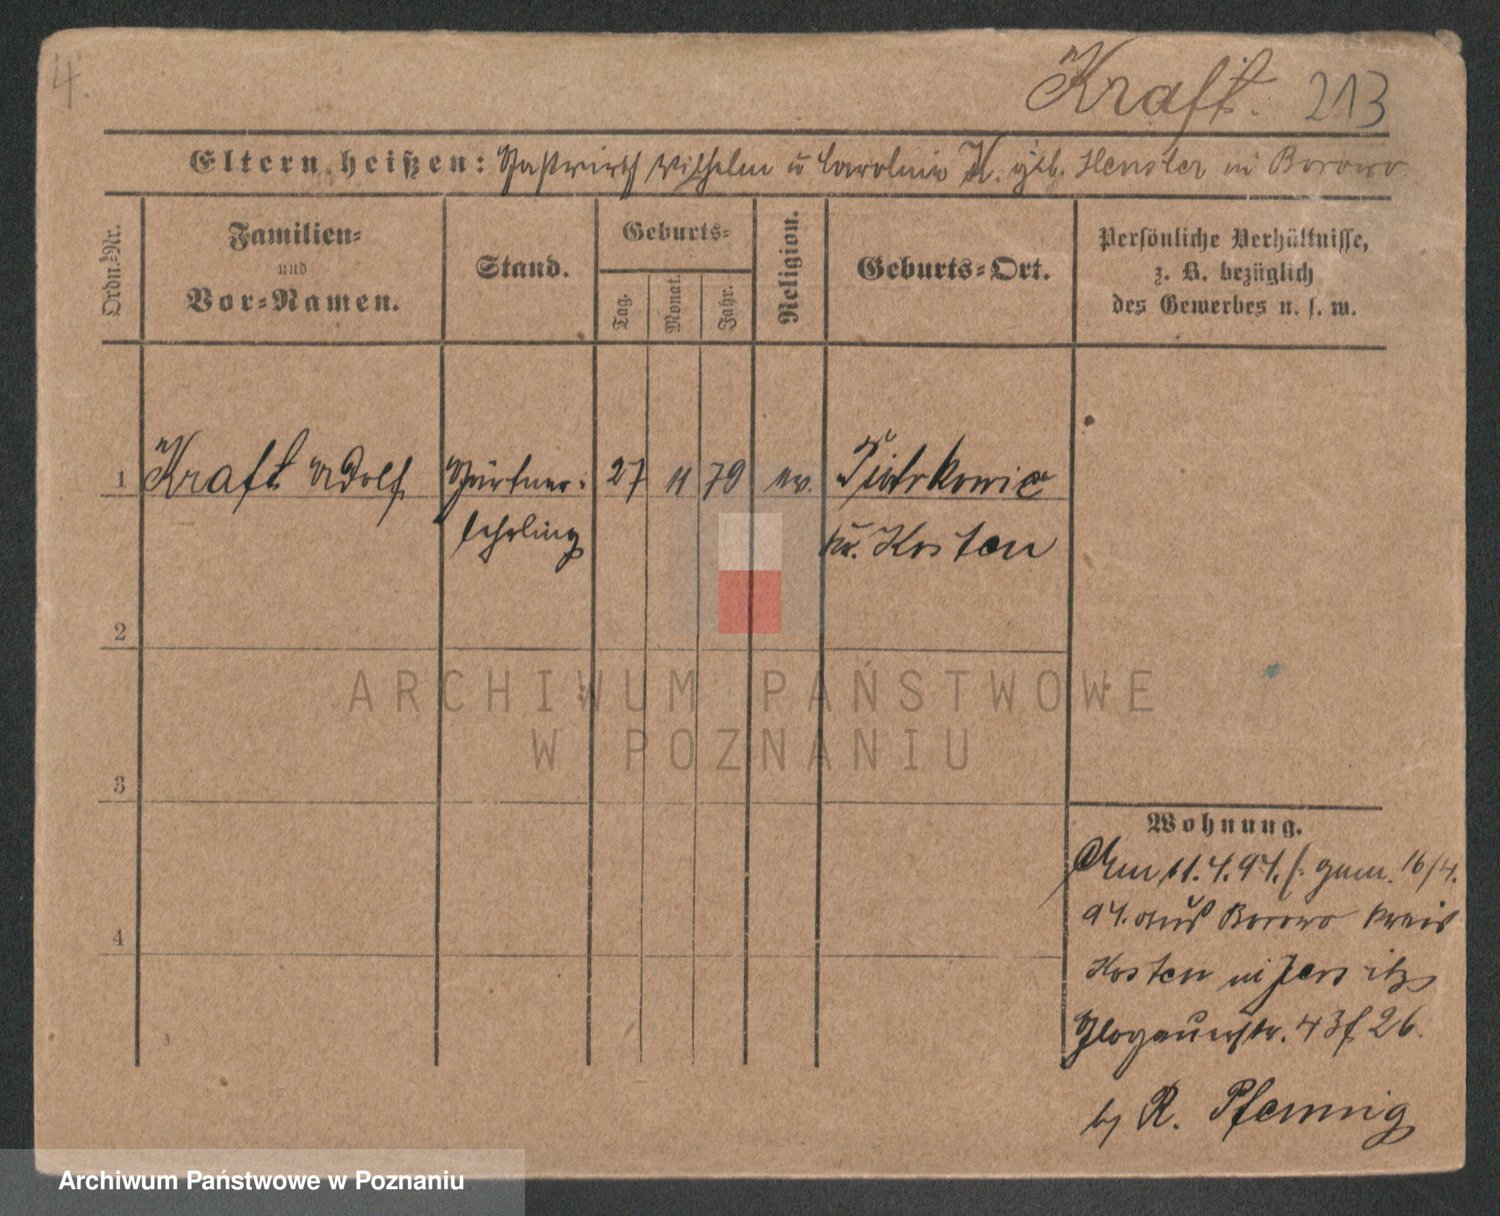 4.
Kraft. 213
Eltern heißen: Gastwirth Wilhelm u Caroline K. geb. Hensler in Borowo
Ordn.-Nr.
Familien-
und
Vor-Namen.
Stand.
Geburts-
Tag.
Monat.
Jahr.
Religion.
Geburts-Ort.
Persönliche Verhältnisse,
z. B. bezüglich
des Gewerbes u. s. w.
1 Kraft Adolf Gärtner- 27 11 79 ev. Piotrkowice
lehrling Kr. Kosten
2
3
4
Wohnung.
Am 11.4.94. gem. 16/4.
94. aus Borowo Kreis
Kosten in Jersitz
Glogauerstr. 43 f 26.
by R. Pfennig
ARCHIWUM PAŃSTWOWE
W POZNANIU
Archiwum Państwowe w Poznaniu